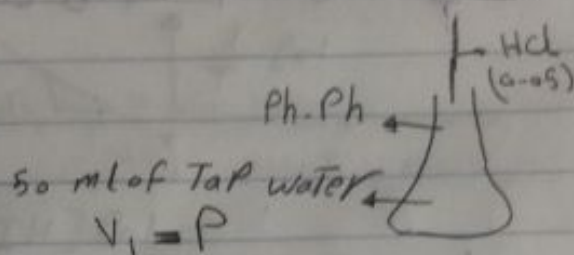 HCl
(0.05)
Ph.Ph
50 ml of Tap water
V₁ = P